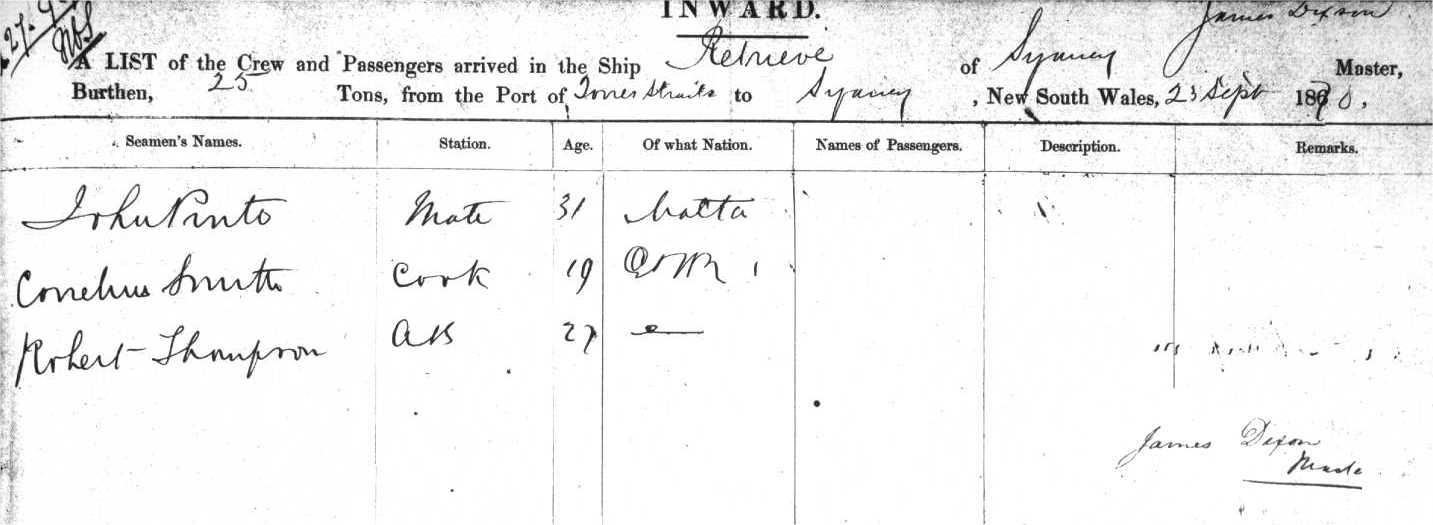 INWARD.
James Dixon
A LIST of the Crew and Passengers arrived in the Ship Retrieve of Sydney Master,
Burthen, 25 Tons, from the Port of Torres Straits to Sydney, New South Wales, 23 Sept 1870.
Seamen's Names. Station. Age. Of what Nation. Names of Passengers. Description. Remarks.
John Pinto Mate 31 Malta
Cornelius Smith Cook 19
Robert Thompson AB 27
James Dixon